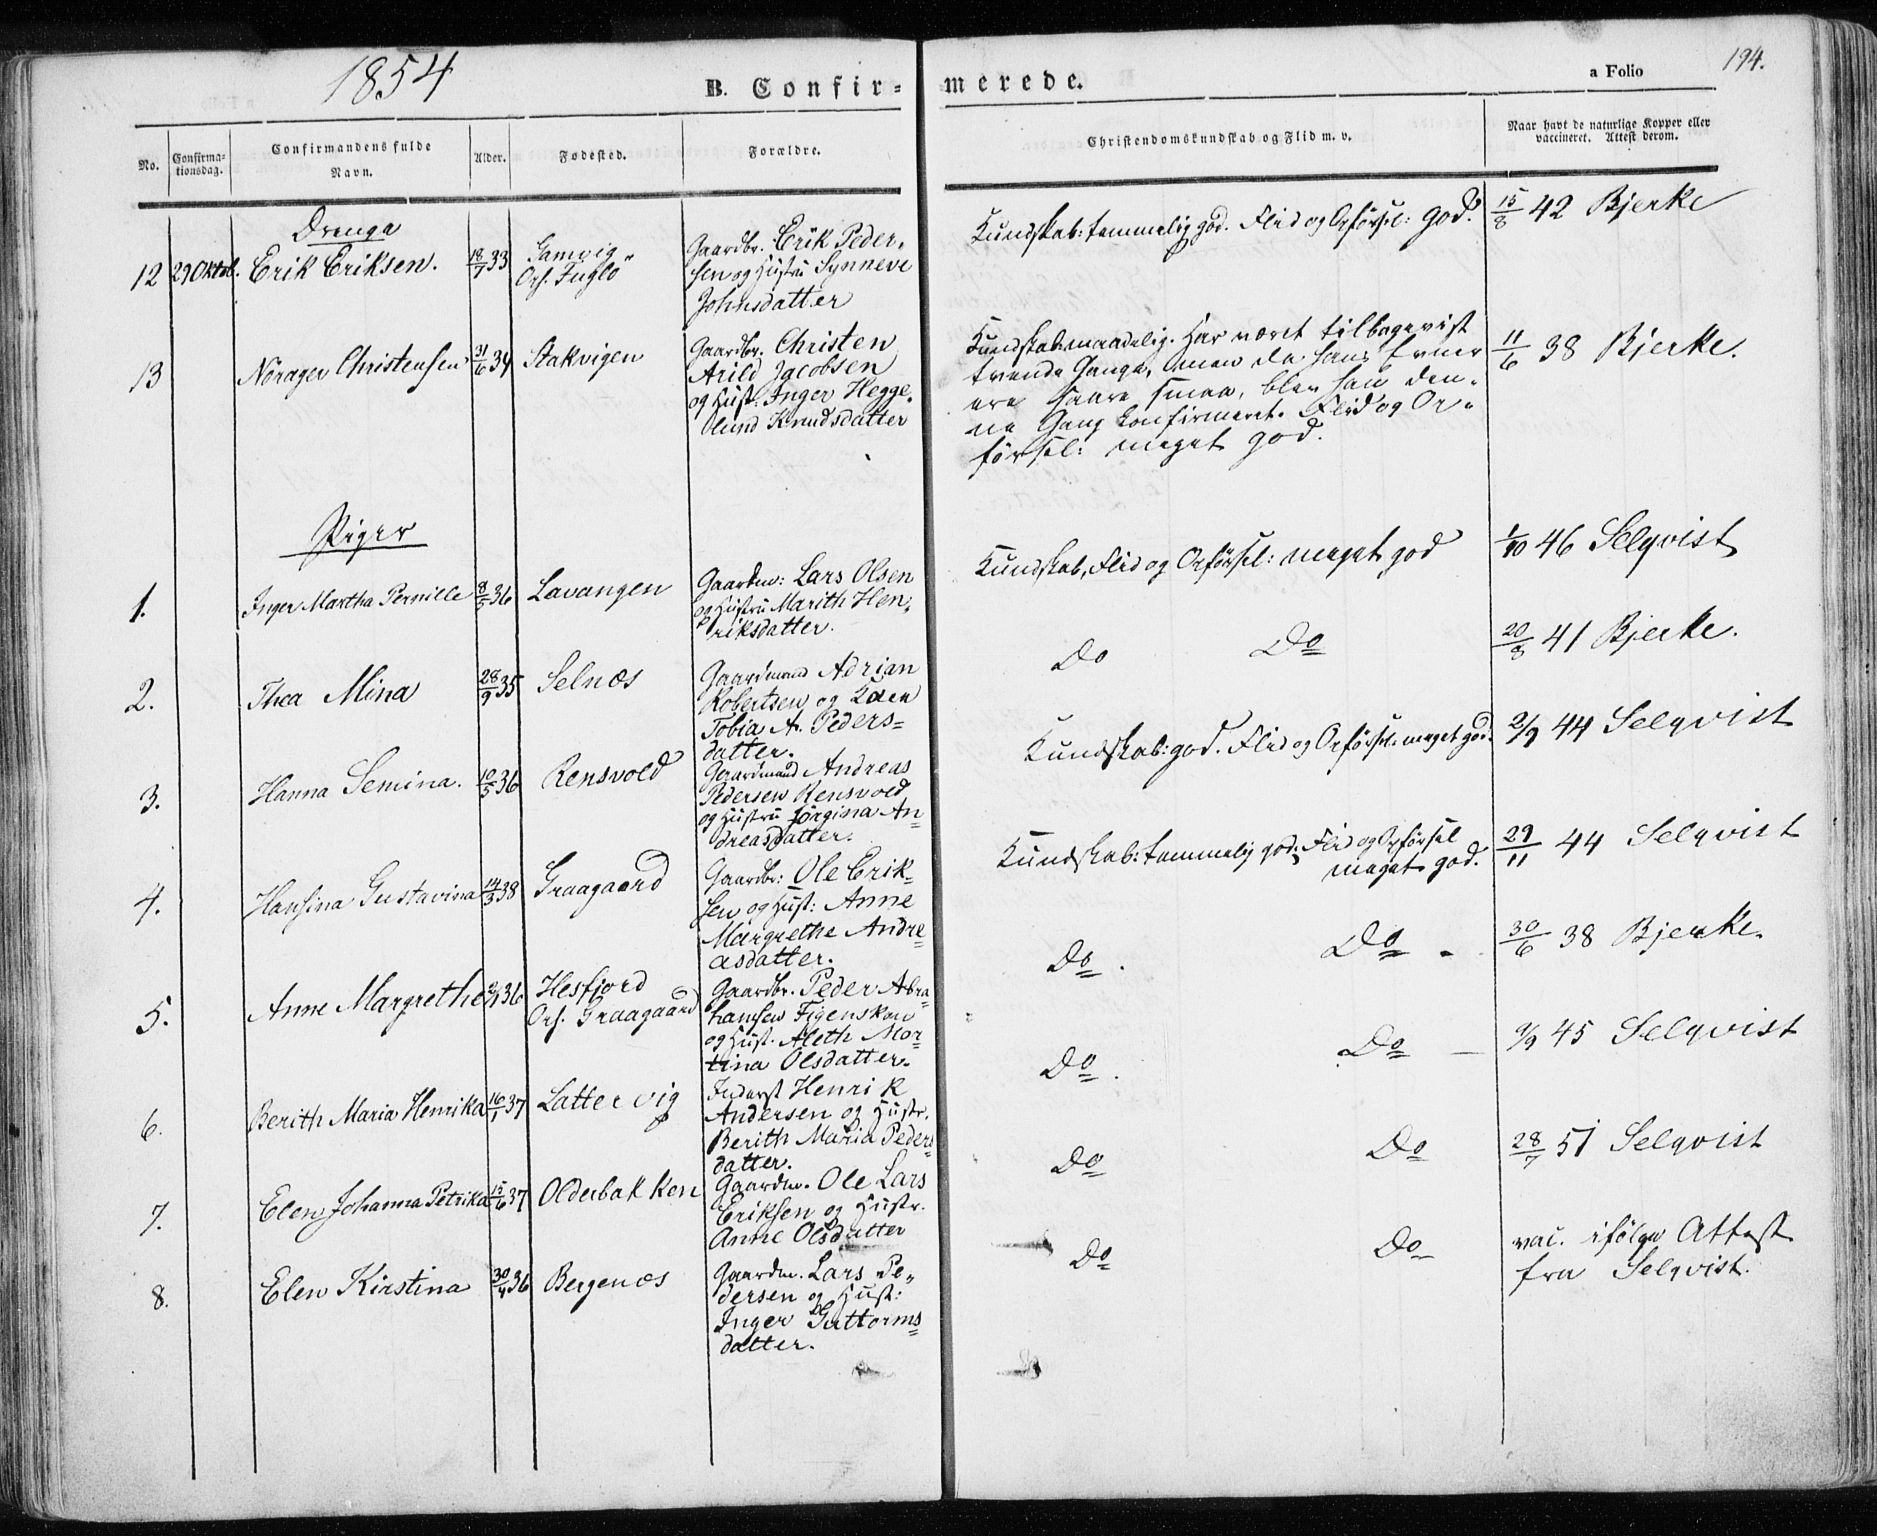 1854
B. Confir-
merede.
a Folio
194.
No.
Confirma-
tionsdag.
Confirmandens fulde
Navn.
Alder.
Fødested.
Forældre.
Christendomskundskab og Flid m. v.
Naar havt de naturlige Kopper eller
vaccineret. Attest derom.
Drenge
12 29 Oktob. Erik Eriksen. 18/7 33 Gamvig
Opf. Fuglø
Gaardbr. Erik Peder-
sen og Hustru Synneve
Johnsdatter
Kundskab: temmelig god. Flid og Opførsel: god.
15/8 42 Bjerke
13 Nørager Christensen 31/6 34 Stakvigen
Gaardbr. Christen
Arild Jacobsen
og Hust. Inger Hegge-
lund Knudsdatter
Kundskab: maadelig. Har været tilbagevist
trende Gange, men da hans Evner
ere saare smaa, blev han den-
ne Gang konfirmeret. Flid og Op-
førsel: meget god.
11/6 38 Bjerke.
Piger
1. Inger Martha Pernille 8/5 36 Lavangen
Gaardm: Lars Olsen
og Hustru Marith Hen-
riksdatter.
Kundskab, Flid og Opførsel: meget god
1/10 46 Selqvist
2. Thea Mina 28/9 35 Selnæs
Gaardmand Adrian
Robertsen og Karen
Tobia A. Peders-
datter.
Do Do
20/8 41 Bjerke.
3. Hanna Semina. 10/5 36 Rensvold
Gaardmand Andreas
Pedersen Rensvold
og Hustru Jørgina An-
dreasdatter.
Kundskab: god. Flid og Opførsel: meget god.
2/9 44 Selqvist
4. Hansina Gustavina 14/3 38 Graagaard
Gaardbr: Ole Erik-
sen og Hust: Anne
Margrethe Andre-
asdatter.
Kundskab: temmelig god; Flid og Opførsel
meget god.
29/11 44 Selqvist
5. Anne Margrethe 2/1 36 Hesfjord
Opf. Graagaard
Gaardbr. Peder Abra-
hamsen Figenskau
og Hust. Aleth Mor-
tina Olsdatter.
Do. Do -
30/6 38 Bjerke.
6. Berith Maria Henrika 16/1 37 Lattervig
Inderst Henrik
Andersen og Hustr.
Berith Maria Peders-
datter.
Do. Do -
9/9 45 Selqvist
7. Elen Johanna Petrika 15/6 37 Olderbakken
Gaardm. Ole Lars
Eriksen og Hustr.
Anne Olsdatter
Do Do
28/7 51 Selqvist
8. Elen Kirstina 30/4 36 Bergenæs
Gaardm. Lars Pe-
dersen og Hust:
Inger Guttorms-
datter.
Do Do
vac. ifølge Attest
fra Selqvist.